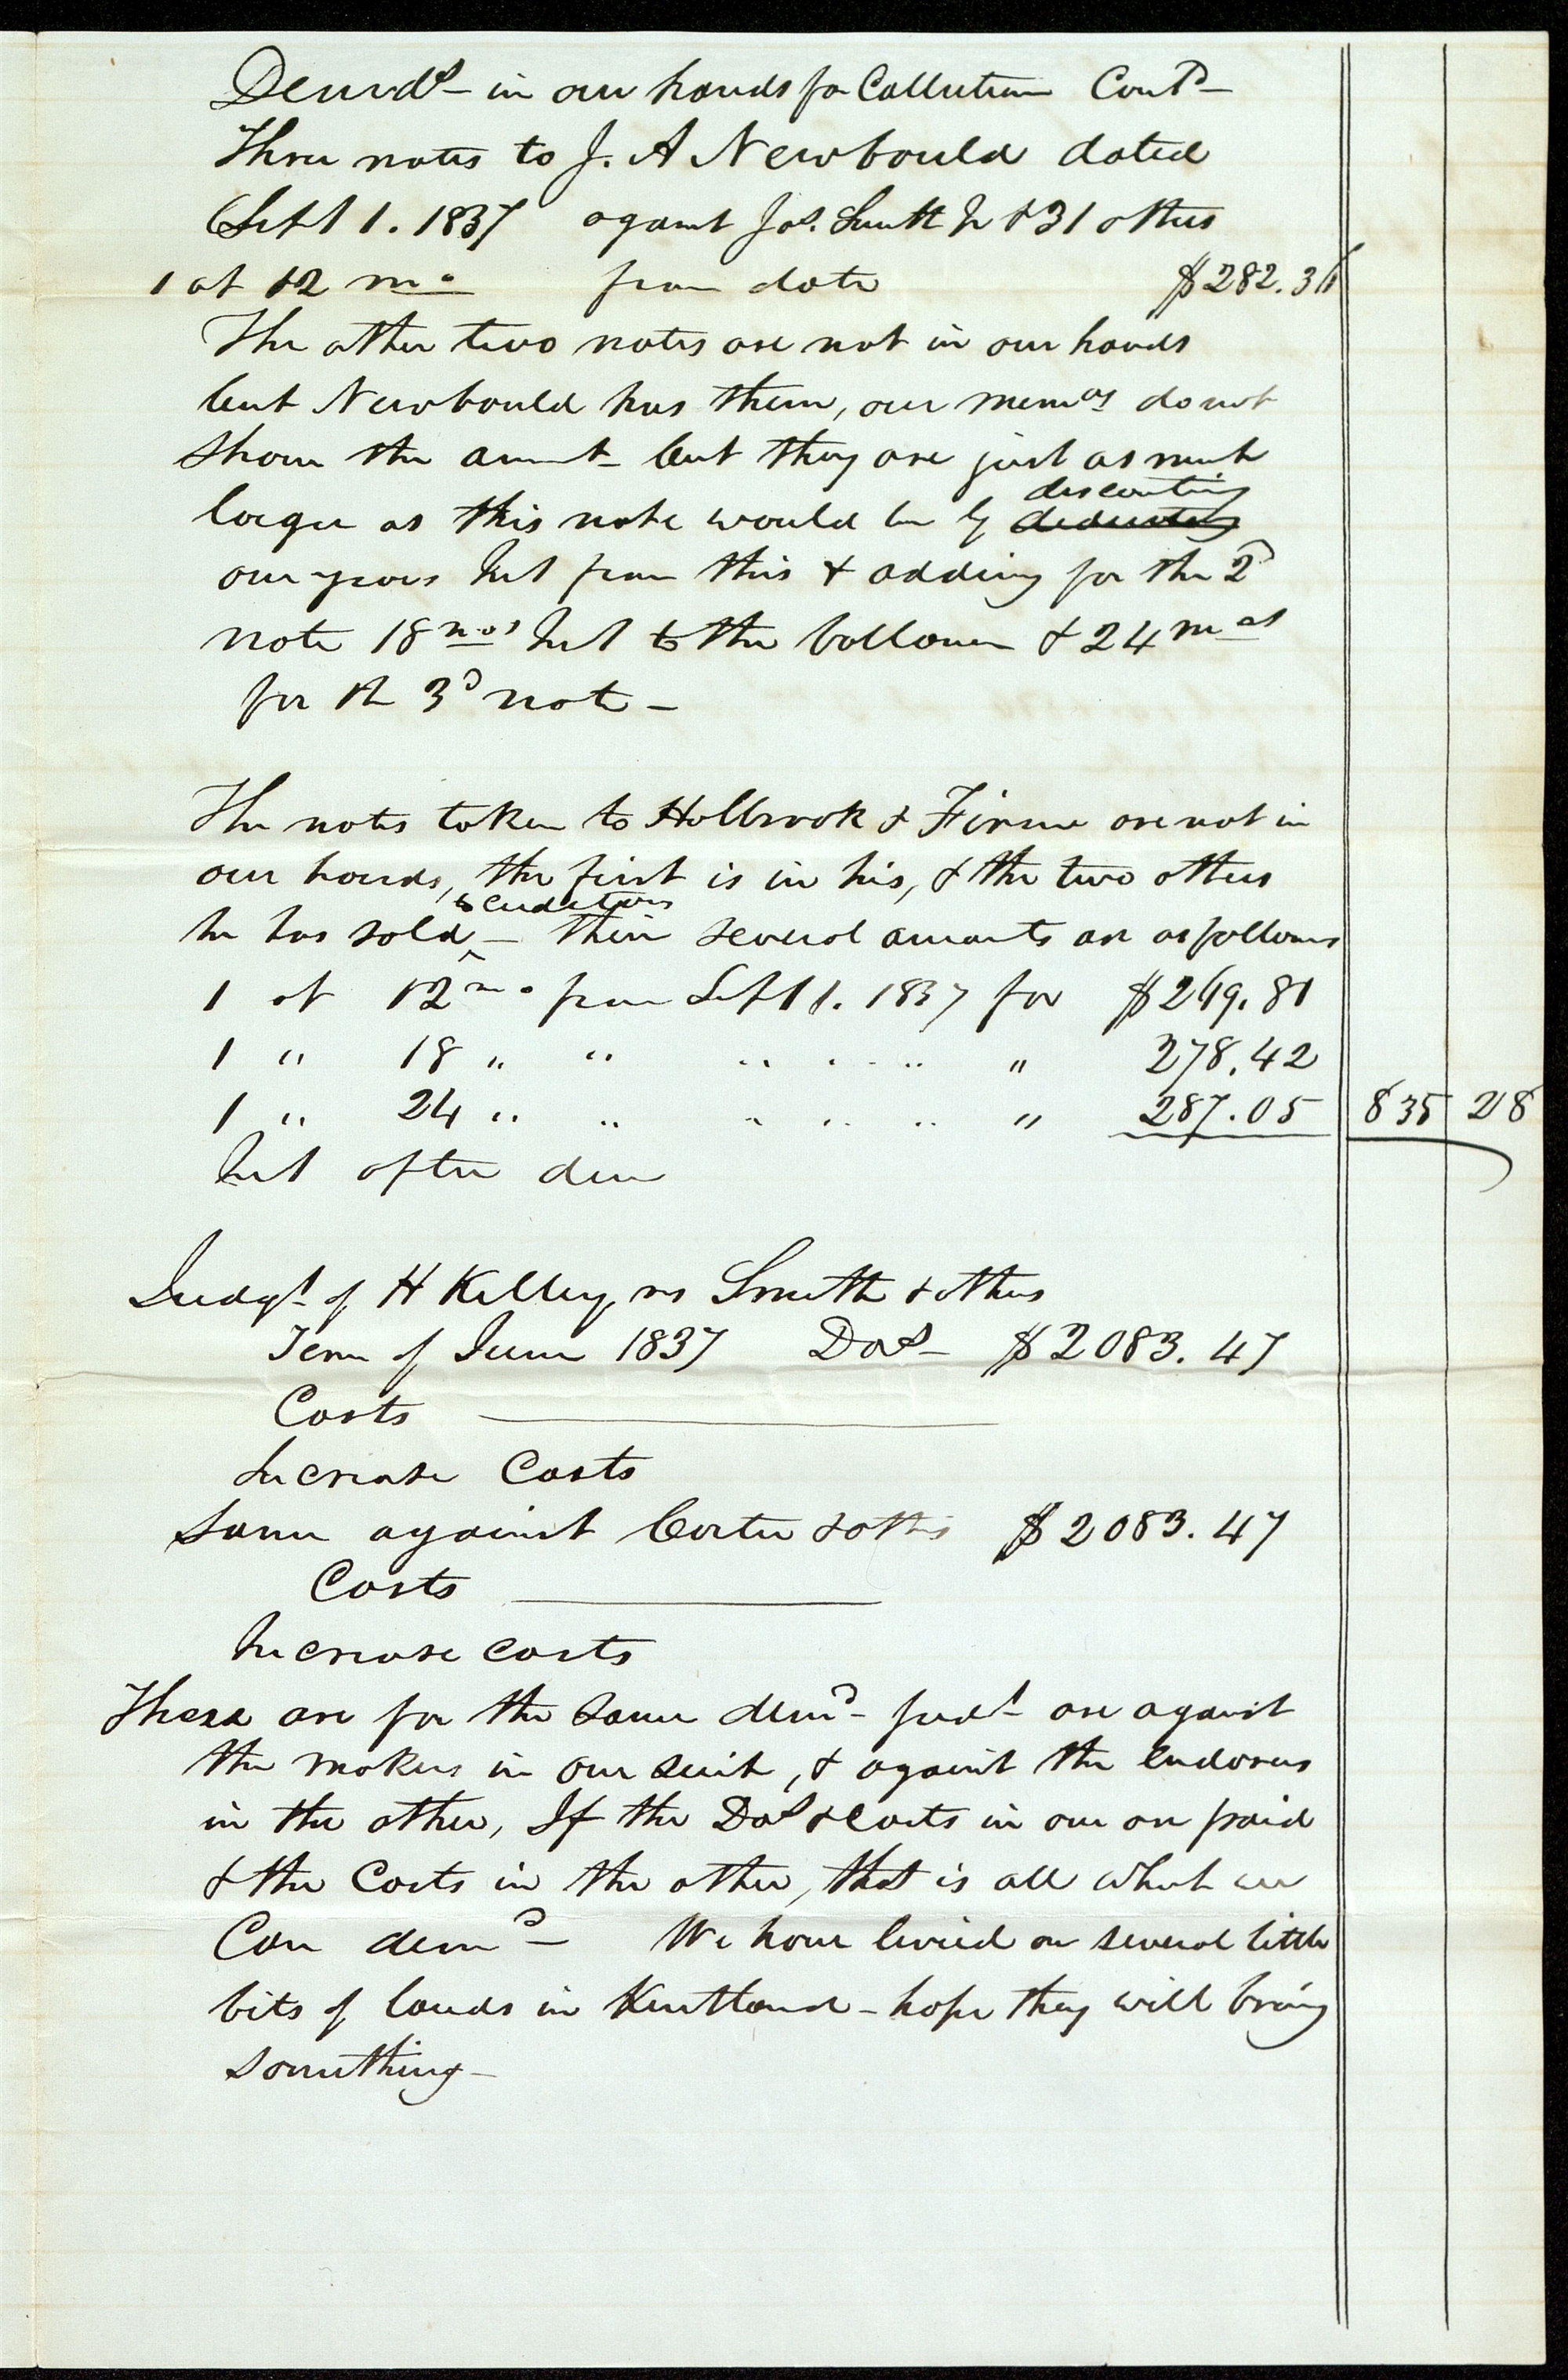 Demds– in our hands for Collection Contd–
Three notes to J. A Newbould dated
Sept 1. 1837 against Jos. Smith Jr & 31 others
1 at 12 mo from date $282.36
The other two notes are not in our hands
but Newbould has them, our memos do not
show the amnt– but they are just as much
larger as this note would be by discounting deducting
one years Int from this & adding for the 2d
note 18 mos Int to the ballance & 24 mos
for th 3d note–
The notes taken to Holbrook & Firme are not in
our hands, the first is in his, & the two others
he has sold to creditors – their several amounts are as follows
1 at 12 mo from Sept 1. 1837 for $269.81
1 " 18 " " " " " " 278.42
1 " 24 " " " " " " 287.05 835 28
Int after due
Judgt of H Kelley vs Smith & others
Term of June 1837 Das– $2083.47
Costs
Increase Costs
Same against Carter & othrs $2083.47
Costs
Increase costs
These are for the same demd– Judt– are against
the makers in one suit, & against the endorsers
in the other, If the Das & Costs in one are paid
& the Costs in the other, that is all what we
Can demd– We have levied on several little
bits of lands in Kirtland – hope they will bring
something–